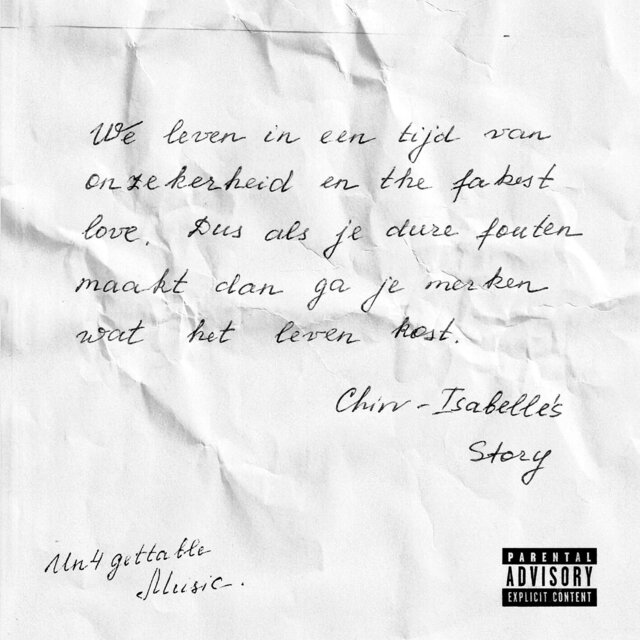 We leven in een tijd van
onzekerheid en the fakest
love. Dus als je dure fouten
maakt dan ga je merken
wat het leven kost.
Chivv - Isabelle's
Story
Un4gettable
Music.
PARENTAL
ADVISORY
EXPLICIT CONTENT